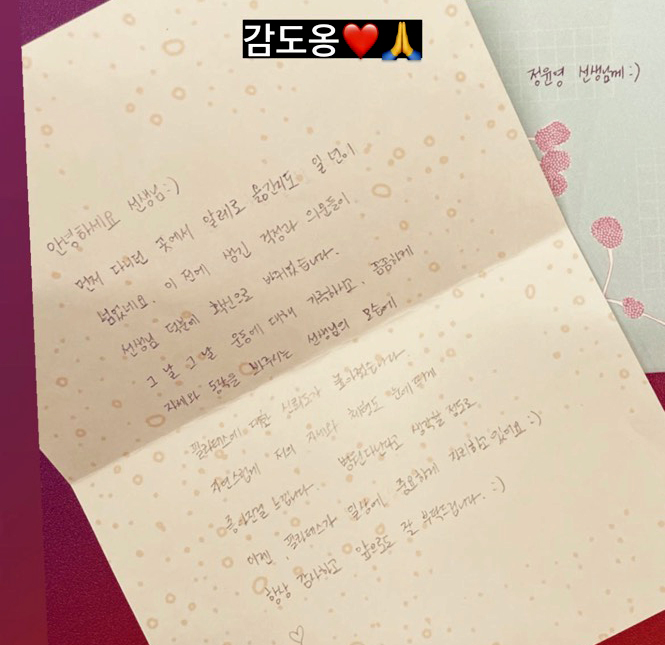 감도옹❤️🙏
정윤영 선생님께:)
안녕하세요 선생님:)
먼저 다니던 곳에서 알레로 옮긴지도 일 년이
넘었네요. 이 전에 생긴 걱정과 의문들이
선생님 덕분에 확신으로 바뀌었습니다.
그 날 그 날 운동에 대해 기록하시고, 꼼꼼하게
자세와 동작을 봐주시는 선생님의 모습에
필라테스에 대한 신뢰도가 높아졌습니다.
자연스럽게 저의 자세와 체형도 눈에 띄게
좋아진걸 느낍니다. 병원다닌다고 생각할 정도로
이젠, 필라테스가 일상에 중요하게 자리하고 있어요:)
항상 감사하고 앞으로도 잘 부탁드립니다. :)
♡